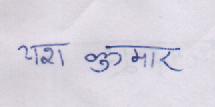 यश कुमार